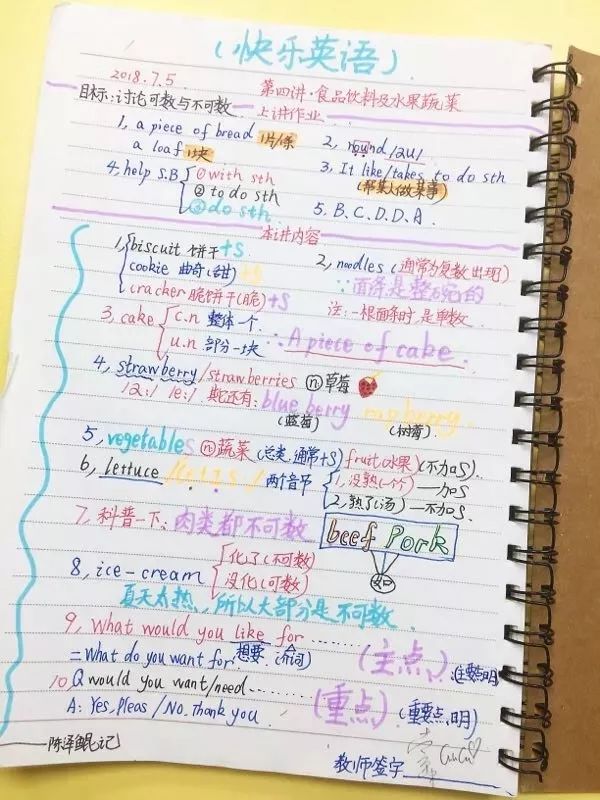 (快乐英语)
2018.7.5 第四讲·食品饮料及水果蔬菜
目标:讨论可数与不可数 上讲作业
1, a piece of bread 1片/条
a loaf 1块
2, round /au/
3, It like/takes to do sth
(帮某人做某事)
4, help S.B ①with sth
②to do sth
③do sth
5. B. C. D. D. A.
本讲内容
1, biscuit 饼干+s
cookie 曲奇(甜)+s
cracker 脆饼干(脆)+s
2, noodles (通常为复数出现)
∵面条是整碗的
注:一根面条时是单数
3, cake c.n 整体一个
u.n 部分一块 ∴A piece of cake.
4, strawberry/stranberries ⓝ草莓
还有: blue berry (蓝莓)
(树莓)
5, vegetables ⓝ蔬菜 (总类,通常+s)
fruit(水果)(不加s)
1, 没熟(个)—加s
2, 熟了(汤)—不加s
6, lettuce /letis/ 两个音节
7, 科普一下: 肉类都不可数 beef Pork
8, ice-cream 化了(不可数)
没化(可数)
夏天太热, 所以大部分是不可数.
9, What would you like for ........
=What do you want for 想要 (介词) (主点)
10 Q would you want/need........
A: Yes, Pleas / No, thank you. (重点) (重要点,明)
——陈泽鲲记
教师签字